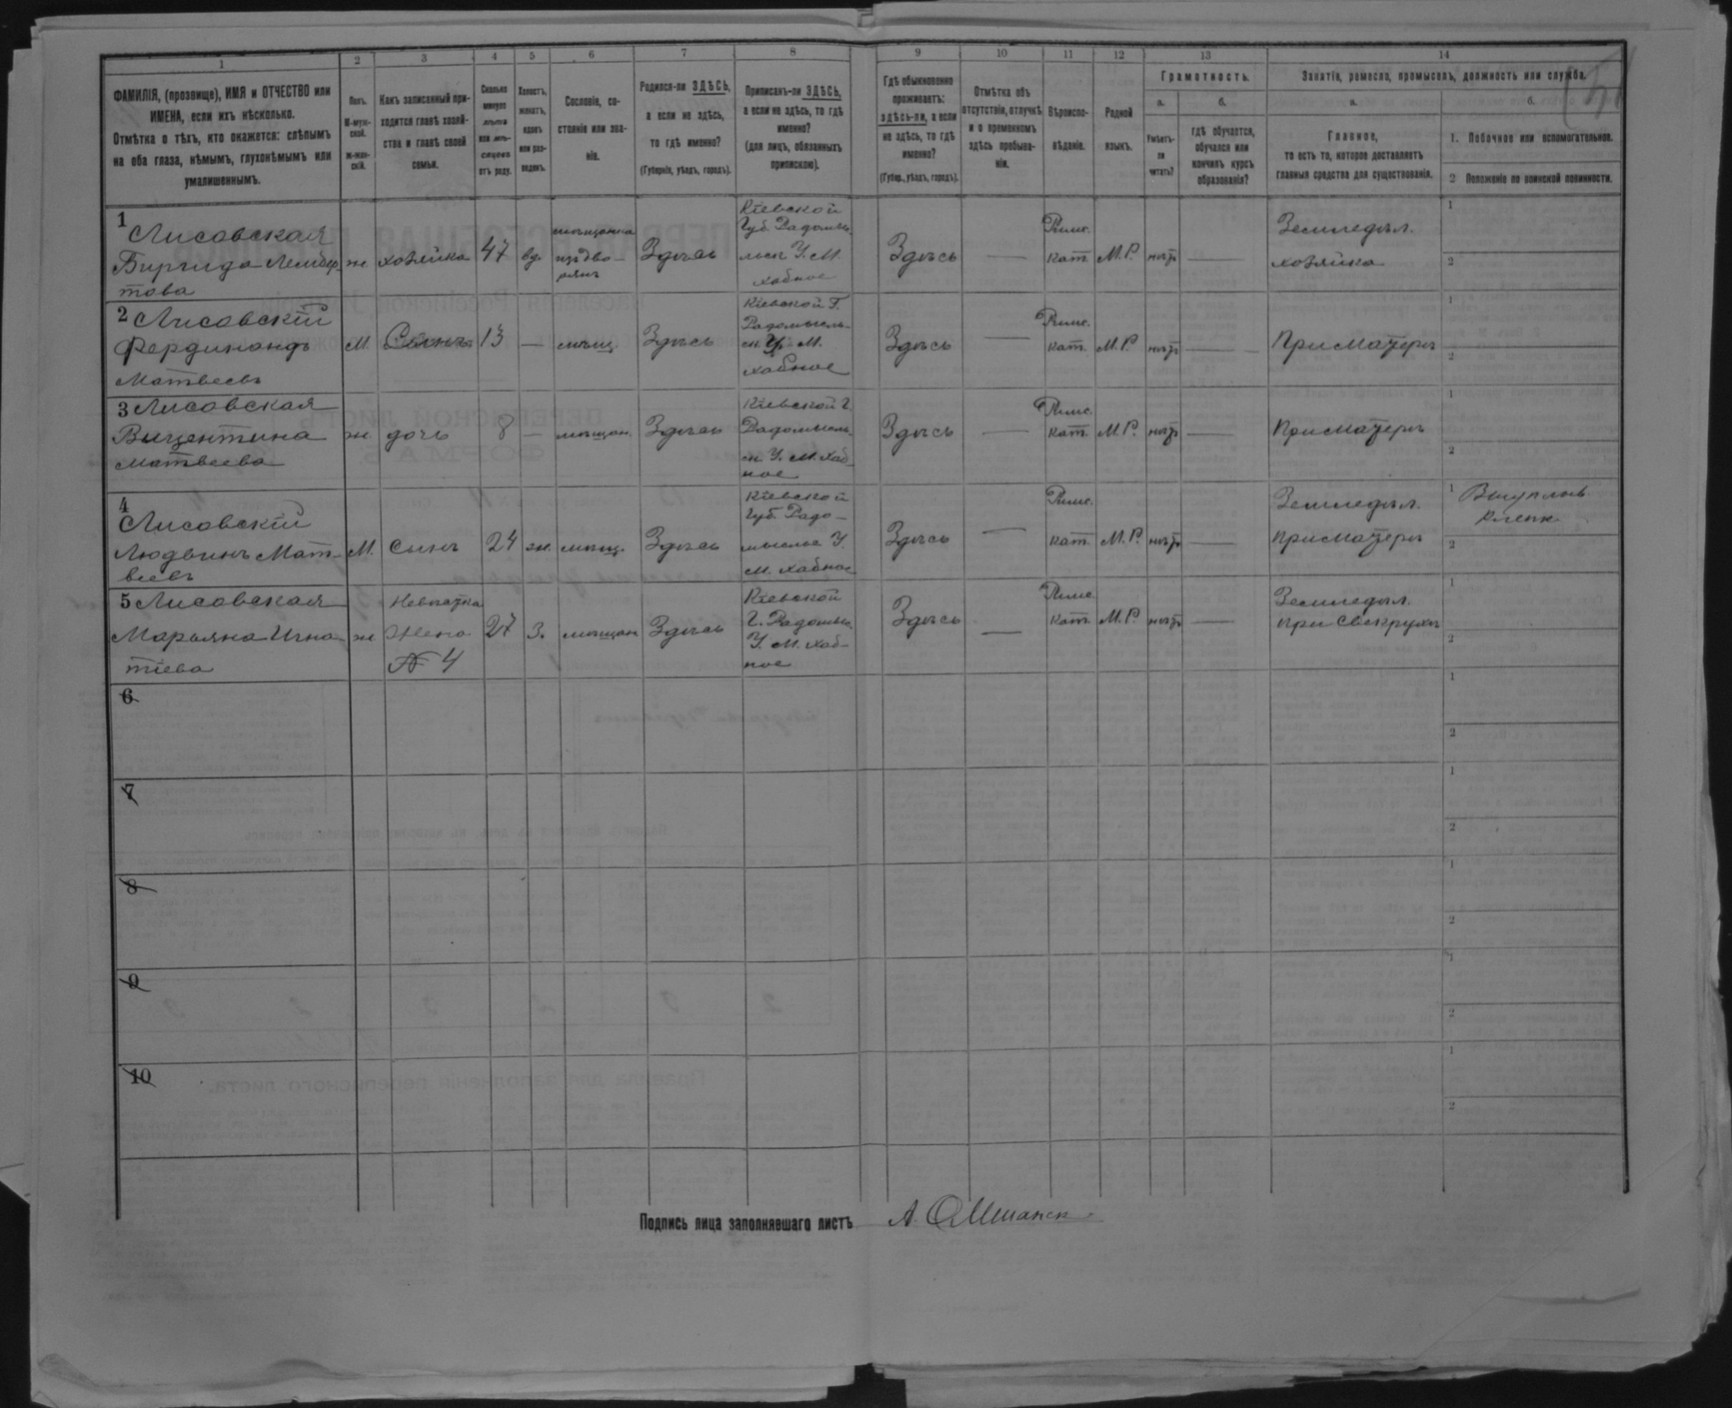 1 2 3 4 5 6 7 8 9 10 11 12 13 14
ФАМИЛІЯ, (прозвище), ИМЯ и ОТЧЕСТВО или
ИМЕНА, если ихъ нѣсколько.
Отмѣтка о тѣхъ, кто окажется: слѣпымъ
на оба глаза, нѣмымъ, глухонѣмымъ или
умалишеннымъ.
Полъ.
М-муж-
ской.
Ж-жен-
скій.
Какъ записанный при-
ходится главѣ хозяй-
ства и главѣ своей
семьи.
Сколько
минуло
лѣтъ
или мѣ-
сяцевъ
отъ роду.
Холостъ,
женатъ,
вдовъ
или раз-
веденъ.
Сословіе, со-
стояніе или зва-
ніе.
Родился-ли ЗДѢСЬ,
а если не здѣсь,
то гдѣ именно?
(Губернія, уѣздъ, городъ).
Приписанъ-ли ЗДѢСЬ,
а если не здѣсь, то гдѣ
именно?
(для лицъ, обязанныхъ
припискою).
Гдѣ обыкновенно
проживаетъ:
здѣсь-ли, а если
не здѣсь, то гдѣ
именно?
(Губер., уѣздъ, городъ).
Отмѣтка объ
отсутствіи, отлучкѣ
и о временномъ
здѣсь пребыва-
ніи.
Вѣроиспо-
вѣданіе.
Родной
языкъ.
Грамотность.
а.
Умѣетъ-
ли
читать?
б.
гдѣ обучается,
обучался или
кончилъ курсъ
образованія?
Занятіе, ремесло, промыселъ, должность или служба.
а.
Главное,
то есть то, которое доставляетъ
главныя средства для существованія.
б.
1. Побочное или вспомогательное.
2 Положеніе по воинской повинности.
1 Лисовская
Биргида Лембер
това
ж
хозяйка
47
вд.
мѣщанка
изъ дво-
рянъ
Здѣсь
Кіевской
Губ. Радомы
льск У. М.
Хабное
Здѣсь
—
Римс.
кат.
М.Р.
нѣтъ
—
Земледѣл.
хозяйка
1
2
2 Лисовскій
Фердинандъ
Матвеевъ
М.
Сынъ
13
—
мѣщ.
Здѣсь
Кіевской Г.
Радомысль
ск. У. М.
Хабное
Здѣсь
—
Римс.
кат.
М.Р.
нѣтъ
—
При матери
1
2
3 Лисовская
Вицентина
Матвеева
ж
дочь
8
—
мѣщан.
Здѣсь
Кіевской Г.
Радомысль
ск. У. М. Хаб
ное
Здѣсь
—
Римс.
кат.
М.Р.
нѣтъ
—
При матери
1
2
4
Лисовскій
Людвикъ Мат-
веевъ
М.
сынъ
24
ж.
мѣщ.
Здѣсь
Кіевской
Губ. Радо-
мысльс У.
М. Хабное
Здѣсь
—
Римс.
кат.
М.Р.
нѣтъ
—
Земледѣл.
при матери
1
2
5 Лисовская
Марьяна Игна
тіева
ж
Невѣстка
Жена
№ 4
27
З.
мѣщан
Здѣсь
Кіевской
Г. Радомыс
У. М. Хаб-
ное
Здѣсь
—
Римс
кат.
М.Р
нѣтъ
—
Земледѣл.
при свекрухѣ
1
2
6
1
2
7
1
2
8
1
2
9
1
2
10
1
2
Подпись лица заполнявшаго листъ